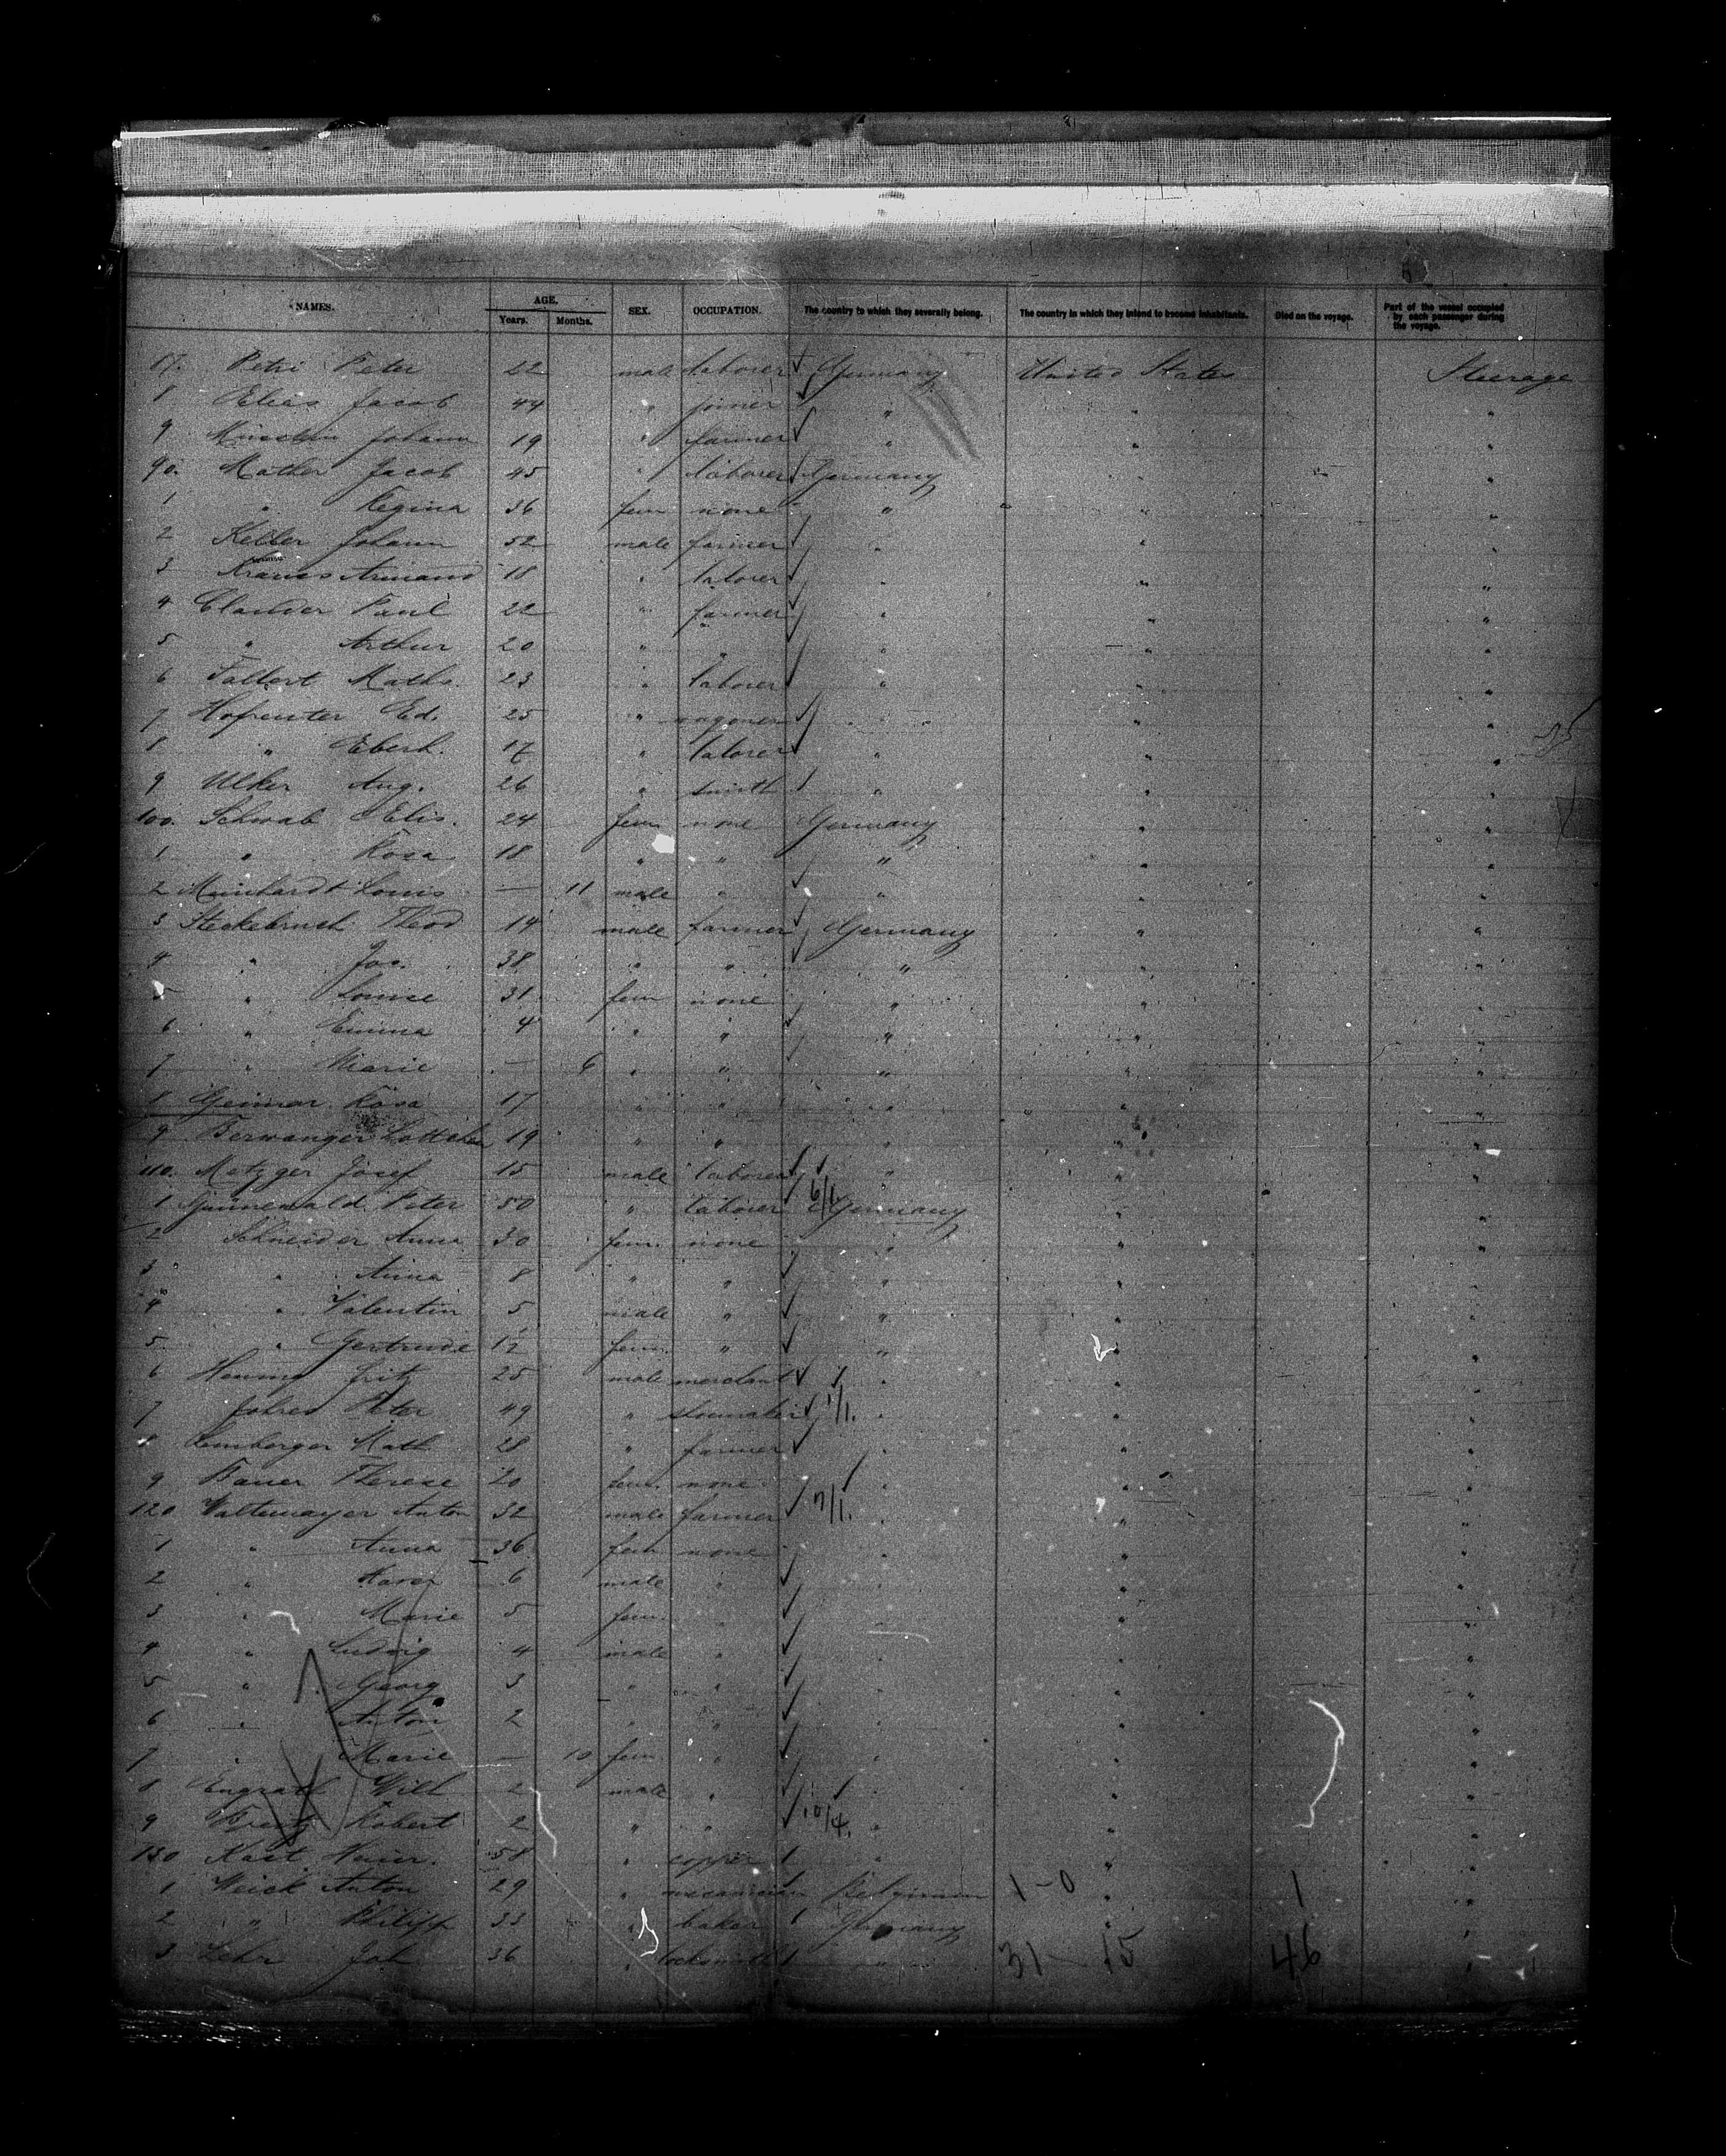 NAMES. AGE. Years. Months. SEX. OCCUPATION. The country to which they severally belong. The country in which they intend to become inhabitants. Died on the voyage. Part of the vessel occupied by each passenger during the voyage.
87. Petri Peter 22 male laborer Germany United States Steerage
8 Elias Jacob 44 " joiner " " "
9 Johann 19 " farmer " " "
90. Mather Jacob 45 " laborer Germany " "
1 " Regina 36 fem none " " "
2 Keller Johann 52 male farmer " " "
3 Armand 18 " laborer " " "
4 Clauder Paul 22 " farmer " " "
5 " Arthur 20 " " " " "
6 Faltert Maths. 23 " laborer " " "
7 Hofreuter Ed. 25 " wagoner " " "
8 " Eberh. 17 " laborer " " "
9 Ulker Aug. 26 " smith " " "
100. Schwab Elis. 24 fem none Germany " "
1 " Rosa 18 " " " " "
2 Meinhardt Louis — 11 male " " " "
3 Steckebruch Theod 14 male farmer Germany " "
4 " Jos. 38 " " " " "
5 " Louise 31 fem none " " "
6 " Emma 4 " " " " "
7 " Marie — 6 " " " " "
8 Rosa 17 " " " " "
9 Berwanger Lottchen 19 " " " " "
110. Metzger Josef 15 male laborer " " "
1 Grünewald Peter 50 " laborer 6/1. Germany " "
2 Schneider Anna 30 fem. none " " "
3 " Anna 8 " " " " "
4 " Valentin 5 male " " " "
5 " Gertrude 1½ fem. " " " "
6 Fritz 25 male merchant " " "
7 Peter 49 " shoemaker 1/1. " " "
8 Lemberger Math 28 " farmer " " "
9 Bauer Therese 20 fem. none " " "
120 Waltemayer Anton 32 male farmer 7/1. " " "
1 " Anna 36 fem none " " "
2 " Xaver 6 male " " " "
3 " Marie 5 fem. " " " "
4 " Ludwig 4 male " " " "
5 " Georg 3 " " " " "
6 " Anton 2 " " " " "
7 " Marie — 10 fem " " " "
8 Engrath Wilh 2 male " " " "
9 Robert 2 " " 10/4. " " "
130 Kast 58 " copper " " "
1 Weick Anton 29 " mecanician Belgium 1-0 " 1 "
2 " Philipp 33 " baker Germany " "
3 Lehr Joh 36 " locksmith " 31-15 46 "